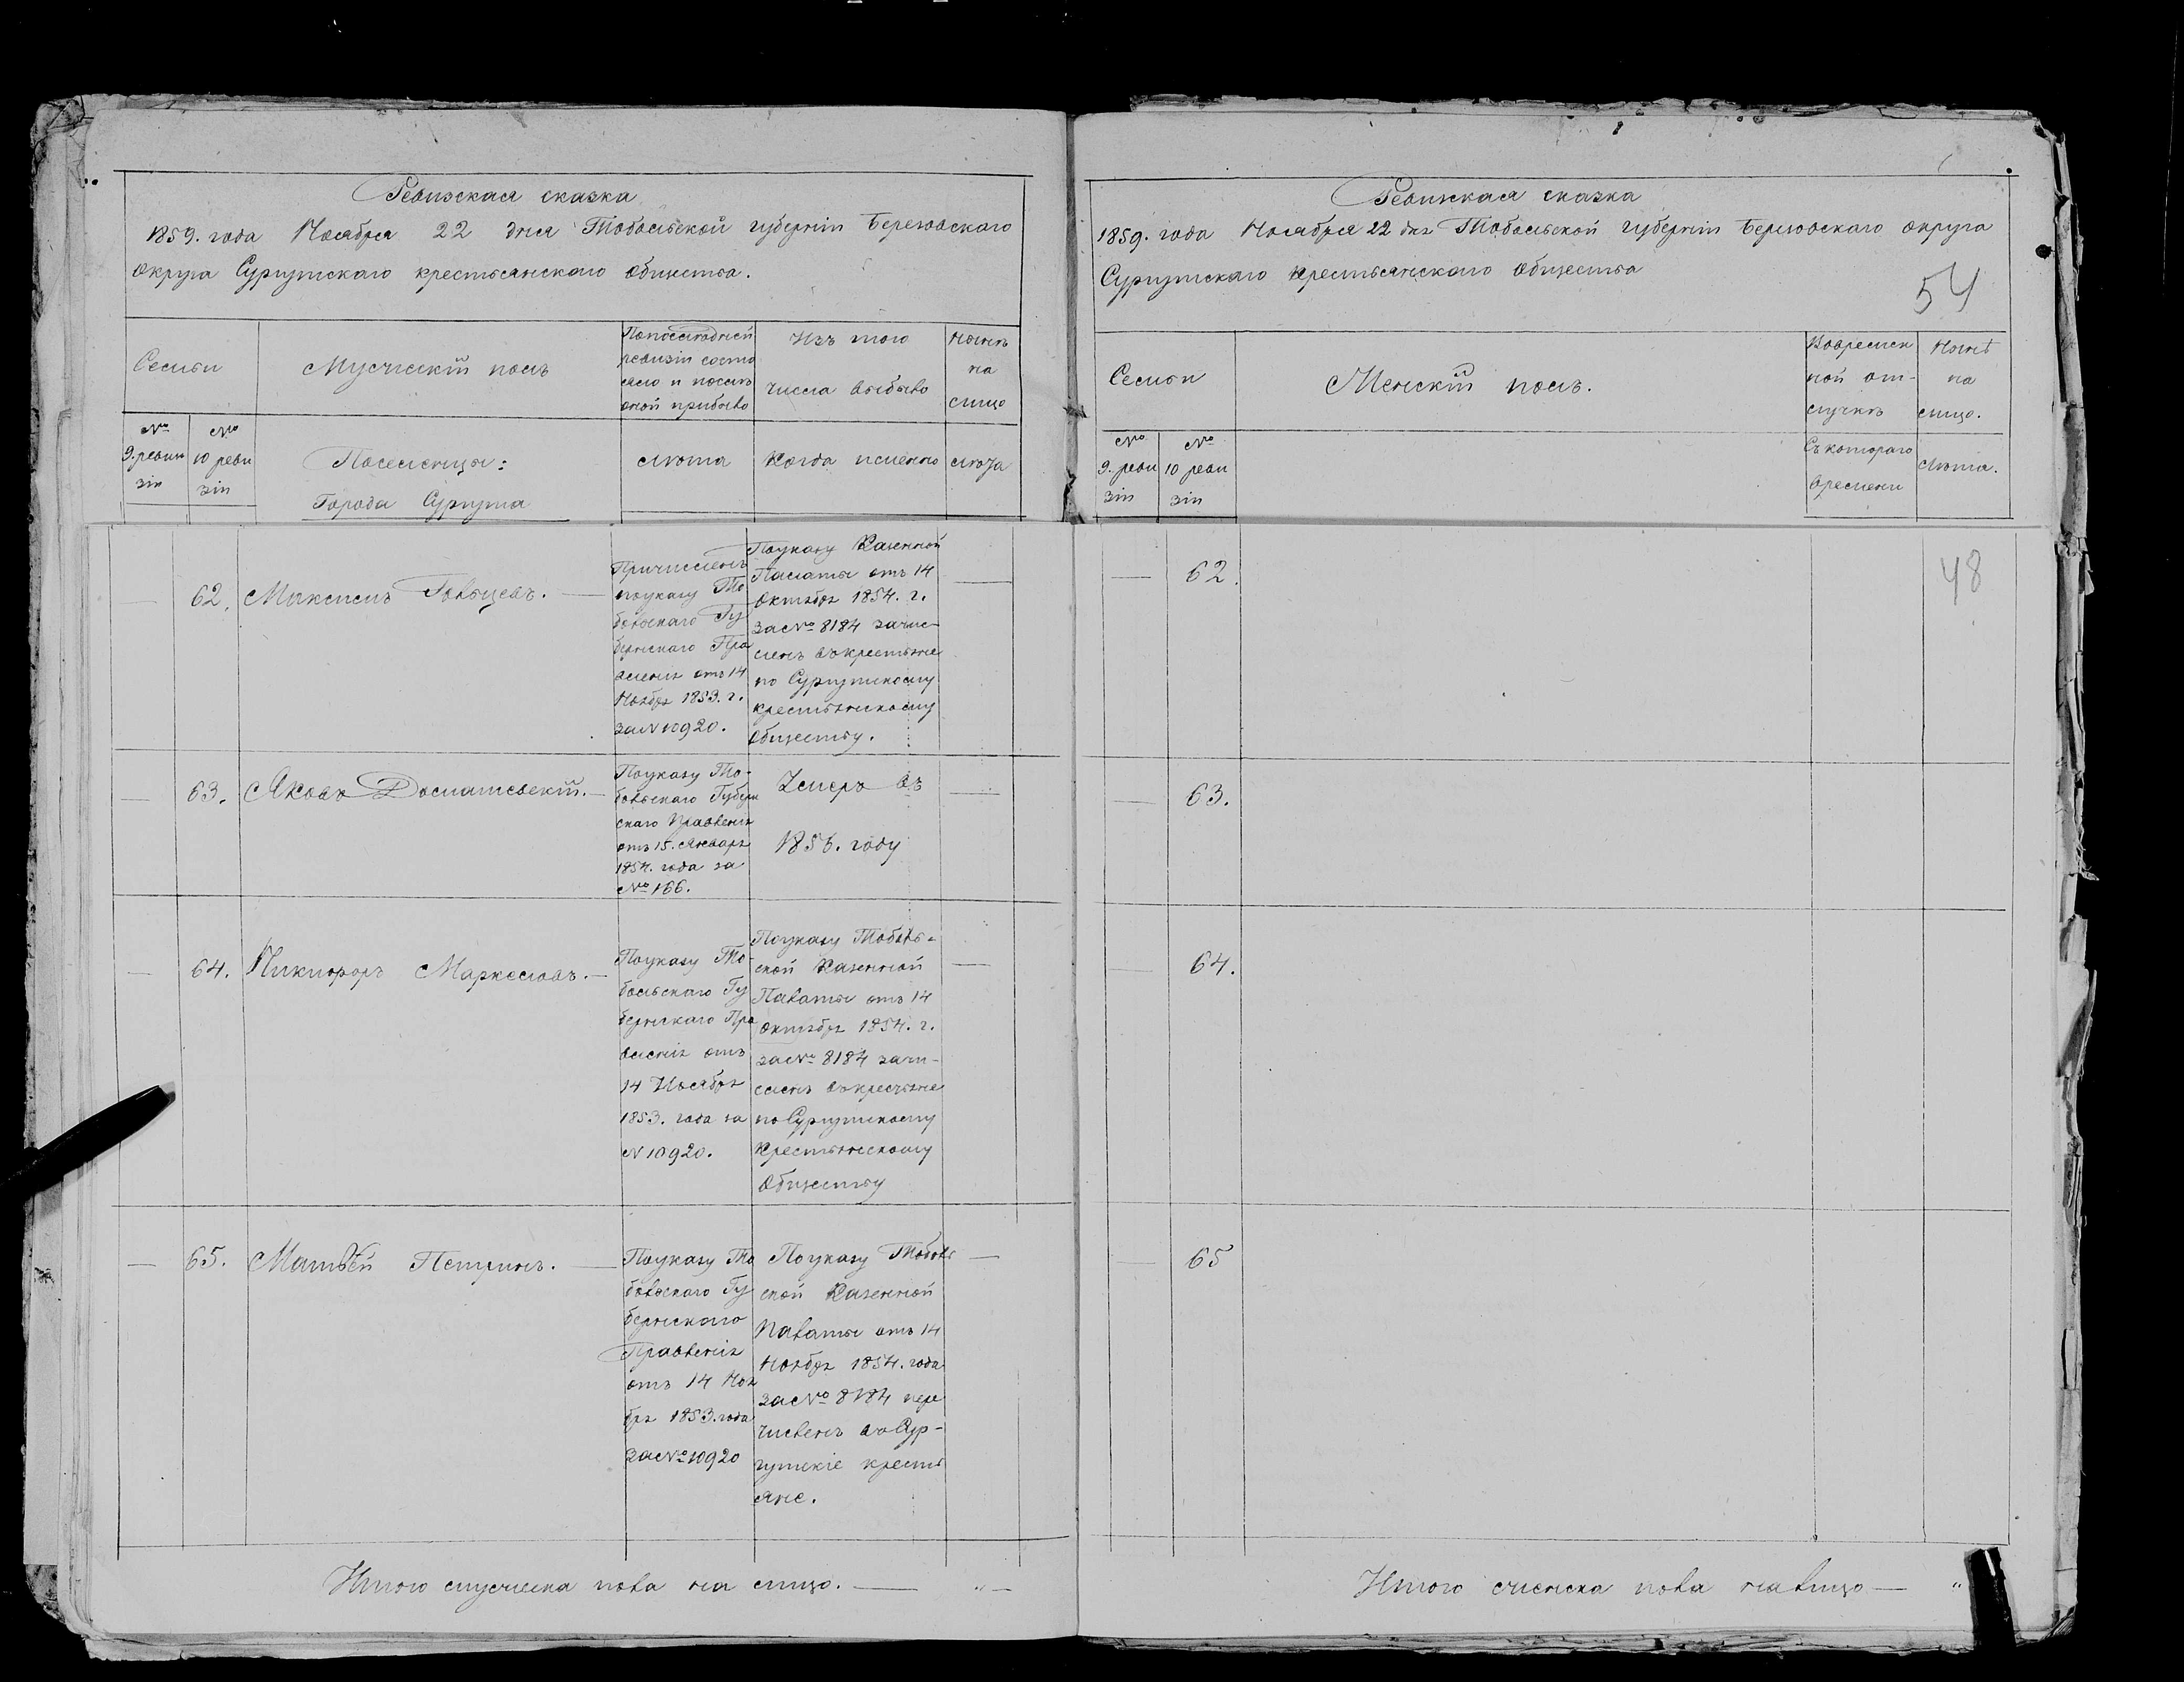 Ревизская сказка
1859. года Ноября 22 дня Тобольской губерніи Березовскаго
округа Сургутскаго крестьянскаго общества.
Семьи
Мужескій полъ
Попоследней
ревизіи состо
яло и послѣ
оной прибыло
Изъ того
числа выбыло
Нынѣ
на
лицо
№
9. реви
зіи
№
10 реви
зіи
Поселенцы:
Города Сургута
лѣта
Когда именно
лѣта
— 62. Максимъ Гольцевъ. —
Причисленъ
поуказу То
больскаго Гу
бернскаго Пра
вленія отъ 14
Ноября 1853. г.
за N 10920.
Поуказу Казенной
Палаты отъ 14
Октября 1854. г.
за № 8184 зачис-
ленъ въкрестьяне
по Сургутскому
крестьянскому
Обществу.
—
— 63. Яковъ Досматевскій. —
Поуказу То-
больскаго Губерн
скаго Правленія
отъ 15. Января
1854. года за
№ 166.
Умеръ въ
1856. году
—
— 64. Никифоръ Маркеловъ. —
Поуказу То-
больскаго Гу
бернскаго Пра
вленія отъ
14 Ноября
1853. года за
N 10920.
Поуказу Тоболь-
ской Казенной
Палаты отъ 14
Октября 1854. г.
за № 8184 зачи-
сленъ въкрестьяне
по Сургутскому
Крестьянскому
Обществу
—
— 65. Матвѣй Петринъ. —
Поуказу То
больскаго Гу
бернскаго
Правленія
отъ 14 Ноя
бря 1853. года
за № 10920
Поуказу Тоболь
ской Казенной
Палаты отъ 14
Ноября 1854. года
за № 8184 пере
численъ въ Сур-
гутскіе кресть
яне.
—
Итого мужеска пола на лицо. — „ —
Ревизская сказка
1859. года Ноября 22 дня Тобольской губерніи Березовскаго округа
Сургутскаго крестьянскаго общества
54
Семьи
Женскій полъ.
Вовремен
ной от-
лучкѣ
Нынѣ
на
лицо.
№
9. реви
зіи
№
10 реви
зіи
Съ котораго
времени
Лѣта.
— 62.
48
— 63.
— 64.
— 65
Итого женска пола налицо — „